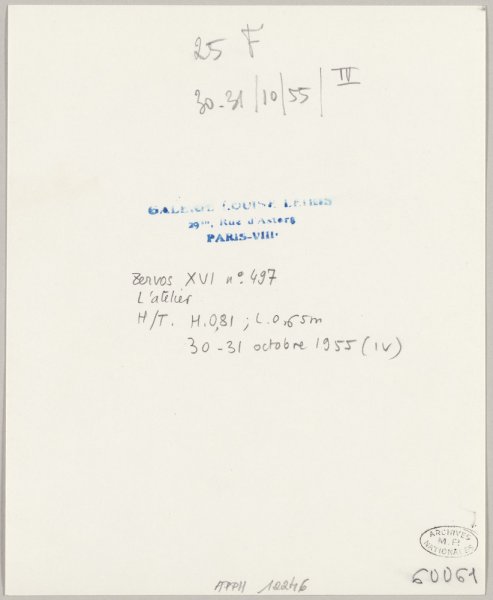 25 F
30-31/10/55/IV
GALERIE LOUISE LEIRIS
29bis, Rue d'Astorg
PARIS-VIIIe
Zervos XVI n° 497
L'atelier
H/T. H.0,81 ; L.0,65m
30-31 octobre 1955 (IV)
ARCHIVES
NATIONALES
60061
APPH 12246